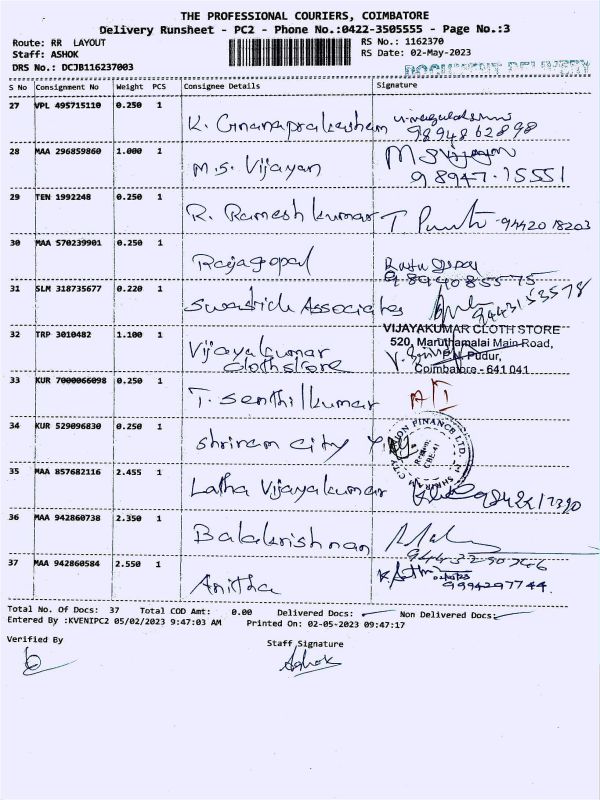 THE PROFESSIONAL COURIERS, COIMBATORE
Delivery Runsheet - PC2 - Phone No.:0422-3505555 - Page No.:3
Route: RR LAYOUT
RS No.: 1162370
Staff: ASHOK
RS Date: 02-May-2023
DRS No.: DCJB116237003
DOCUMENT DELIVERY
S No Consignment No Weight PCS Consignee Details Signature
27 VPL 495715110 0.250 1 K. Gnanaprakasham
9894862898
28 MAA 296859860 1.000 1 M.S. Vijayan M S Vijayan
98947-15551
29 TEN 1992248 0.250 1 R. Ramesh kumar T 94420 18203
30 MAA 570239901 0.250 1 Rajagopal
9894085575
31 SLM 318735677 0.220 1 Swastick Associates 9443153578
32 TRP 3010482 1.100 1 Vijayakumar clothstore
VIJAYAKUMAR CLOTH STORE
520, Maruthamalai Main Road,
P.N. Pudur,
Coimbatore - 641 041
33 KUR 7000066098 0.250 1 T. Senthilkumar
34 KUR 529096830 0.250 1 Shriram city
35 MAA 857682116 2.455 1 Latha Vijayakumar
36 MAA 942860738 2.350 1 Balakrishnan
37 MAA 942860584 2.550 1 Anitha
9994297744
Total No. Of Docs: 37 Total COD Amt: 0.00 Delivered Docs: Non Delivered Docs:
Entered By :KVENIPC2 05/02/2023 9:47:03 AM Printed On: 02-05-2023 09:47:17
Verified By
Staff Signature
Ashok